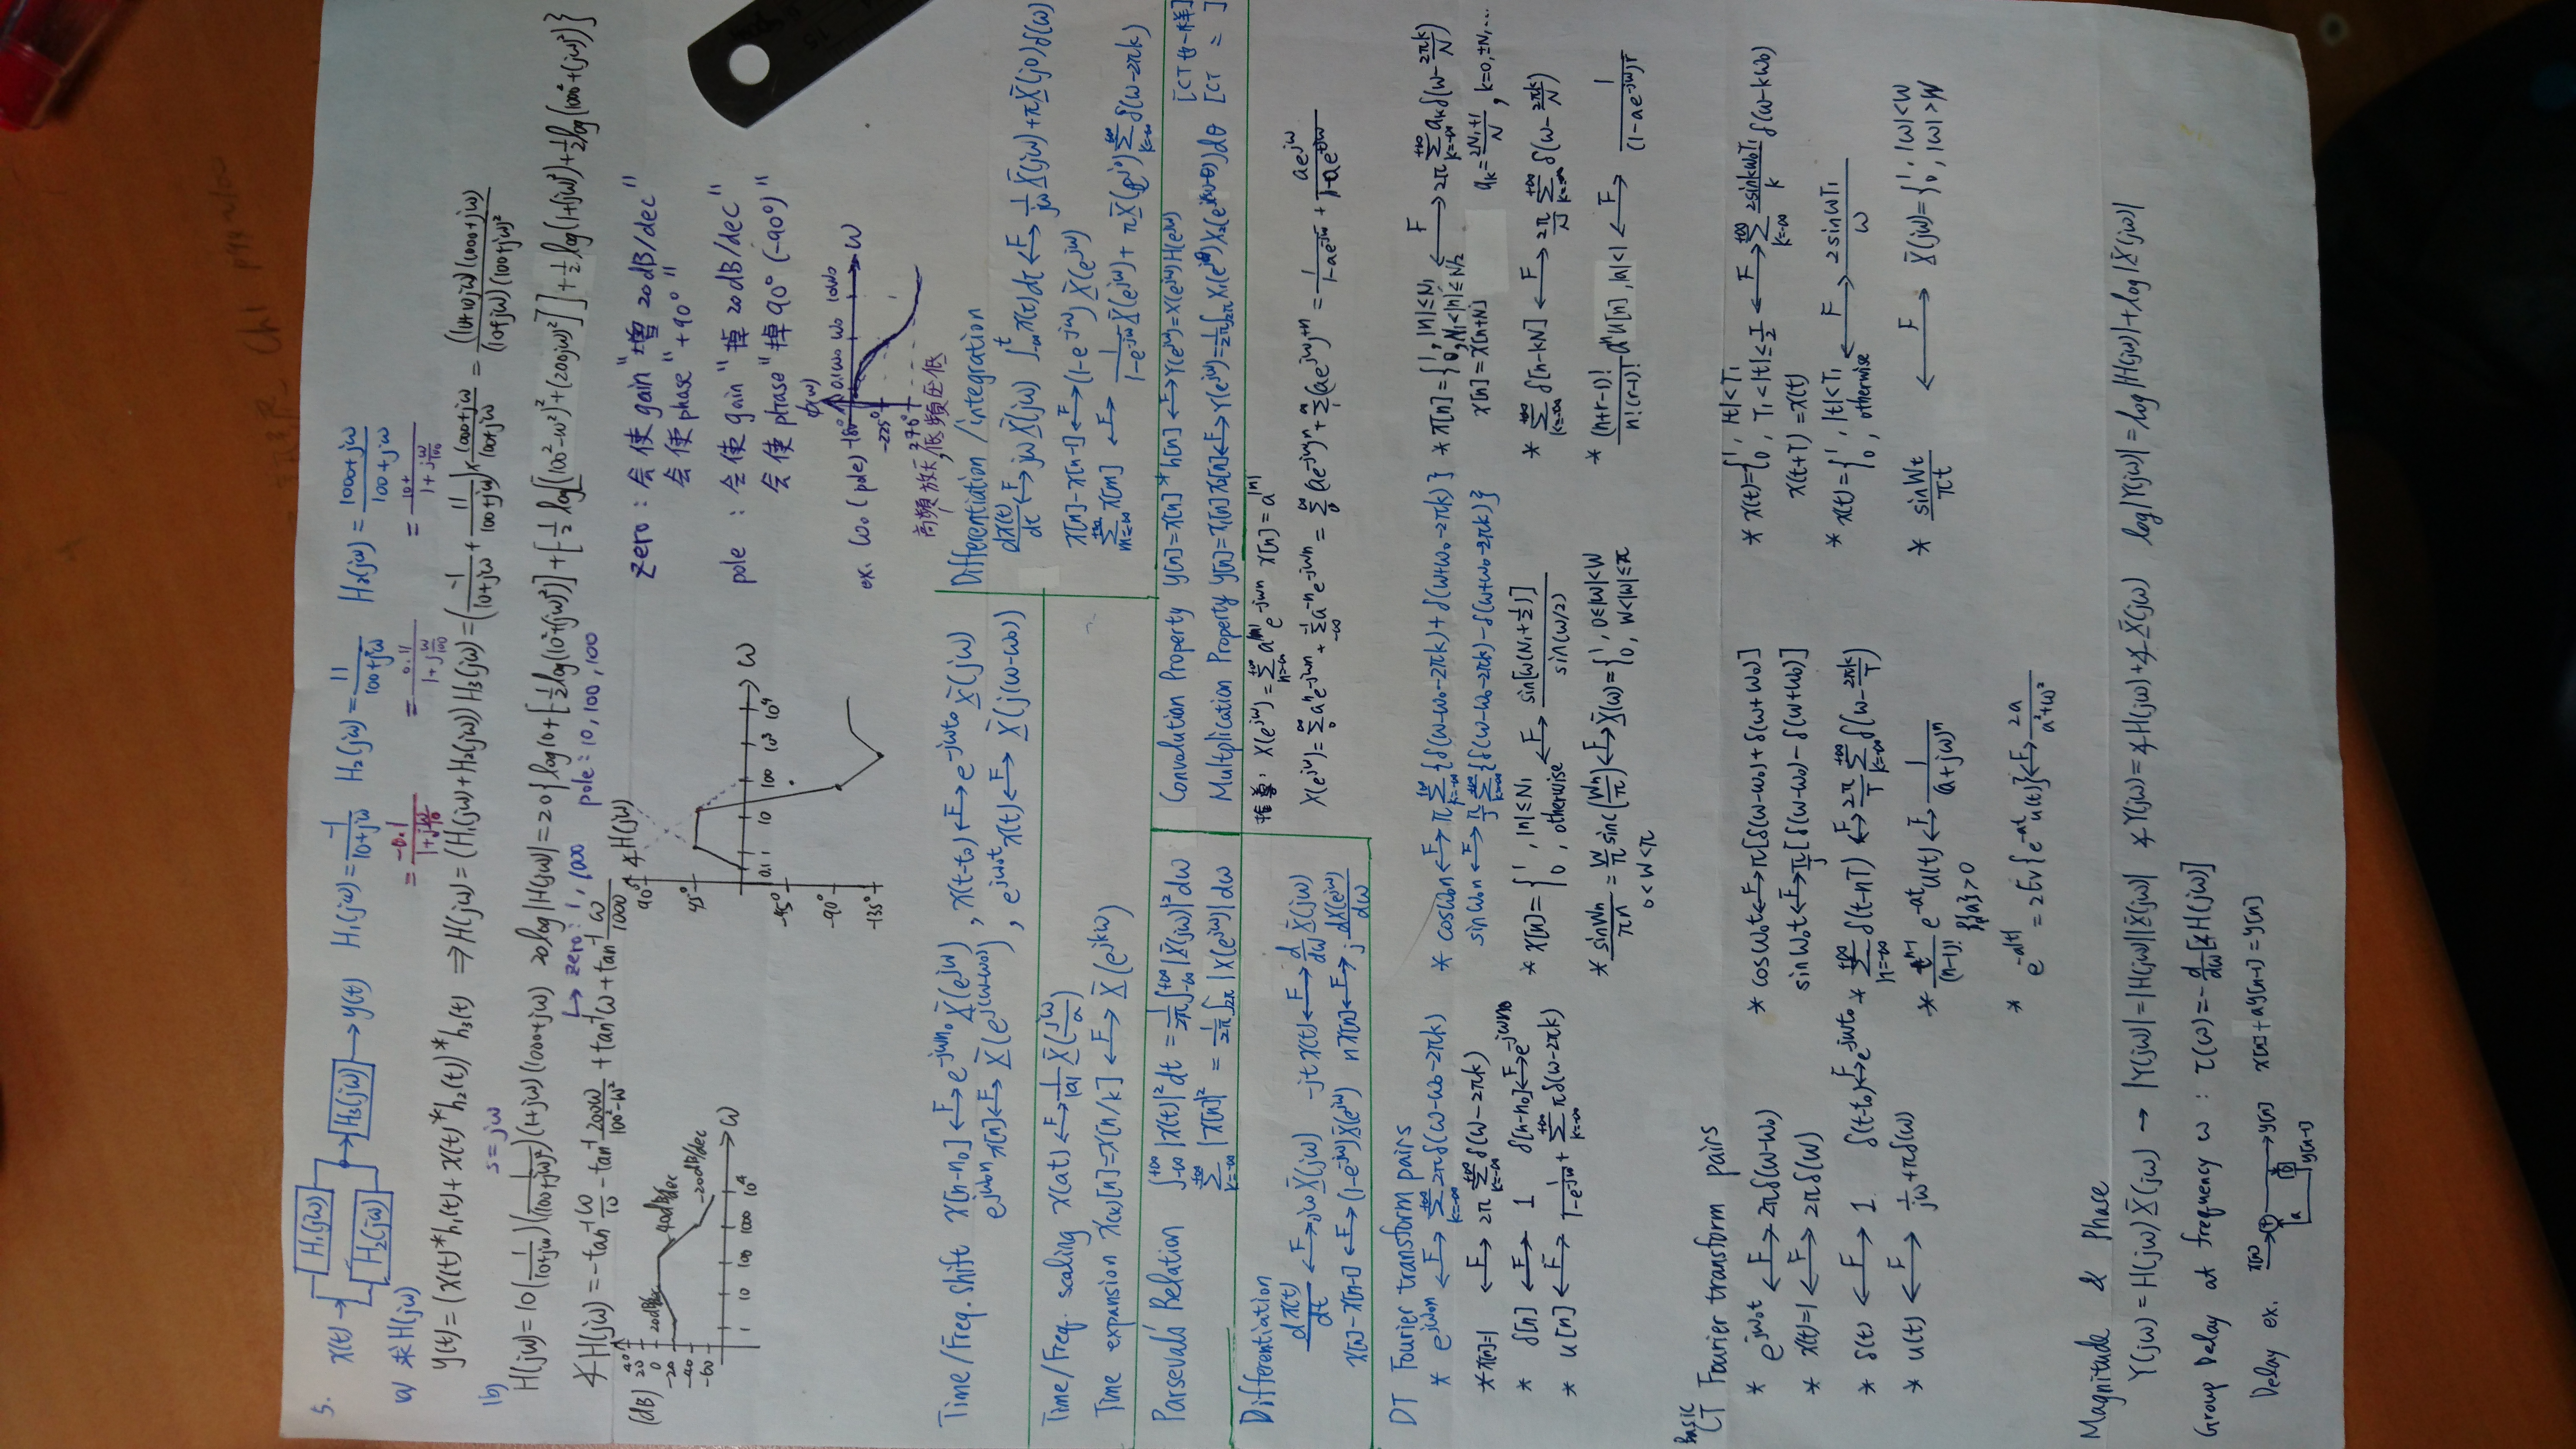 5. x(t) → H₁(jω) H₂(jω) → H₃(jω) → y(t) H₁(jω) = -1/(10+jω) H₂(jω) = 11/(100+jω) H₂(jω) = (1000+jω)/(100+jω)
= -0.1/(1+jω/10) = 0.11/(1+jω/100) = 10+/(1+jω/100)
a) 求 H(jω)
y(t) = (x(t)*h₁(t) + x(t)*h₂(t))*h₃(t) ⇒ H(jω) = (H₁(jω)+H₂(jω))H₃(jω) = (-1/(10+jω) + 11/(100+jω)) × (1000+jω)/(100+jω) = (10+10jω)(1000+jω)/((10+jω)(100+jω)²)
(b) s=jω
H(jω) = 10(1/(10+jω))(1/(100+jω)²)(1+jω)(1000+jω) 20log|H(jω)| = 20{log10+[-½log(10²+(jω)²)]+[-½log[(100²-ω²)²+(200jω)²]]+½log(1+(jω)²)+½log(1000²+(jω)²)}
↳ zero: 1, 1000 pole: 10, 100, 100
∡H(jω) = -tan⁻¹ω/10 - tan⁻¹ 200ω/(100²-ω²) + tan⁻¹ω + tan⁻¹ ω/1000
(dB) 40 20 0 -20 -40 -60
20dB/dec -40dB/dec -20dB/dec
1 10 100 1000 10⁴ ω
∡H(jω)
90° 45° -45° -90° -135°
0.1 1 10 100 10³ 10⁴ ω
zero: 会使 gain "增 20 dB/dec"
会使 phase "+90°"
pole: 会使 gain "掉 20 dB/dec"
会使 phase "掉 90° (-90°)"
ex. ω₀ (pole) φ(ω) -180° -225° -270° 0.1ω₀ ω₀ 10ω₀ ω
高頻放大,低頻压低
Time/Freq. shift x[n-n₀] ←F→ e^{-jωn₀} X(e^{jω}), x(t-t₀) ←F→ e^{-jωt₀} X(jω)
e^{jω₀n} x[n] ←F→ X(e^{j(ω-ω₀)}), e^{jω₀t} x(t) ←F→ X(j(ω-ω₀))
Time/Freq. scaling x(at) ←F→ 1/|a| X(jω/a)
Time expansion x₍ₖ₎[n]=x[n/k] ←F→ X(e^{jkω})
Differentiation/integration
dx(t)/dt ←F→ jωX(jω) ∫_{-∞}^{t} x(t)dt ←F→ 1/jω X(jω)+πX(j0)δ(ω)
x[n]-x[n-1] ←F→ (1-e^{-jω})X(e^{jω})
∑_{m=-∞}^{+∞} x[m] ←F→ 1/(1-e^{-jω}) X(e^{jω}) + πX(e^{j0})∑_{k=-∞}^{+∞} δ(ω-2πk)
Parseval's Relation ∫_{-∞}^{+∞}|x(t)|²dt = 1/2π ∫_{-∞}^{+∞}|X(jω)|²dω
∑_{k=-∞}^{+∞}|x[n]|² = 1/2π ∫_{2π}|X(e^{jω})|dω
Convolution Property y[n]=x[n]*h[n] ←F→ Y(e^{jω})=X(e^{jω})H(e^{jω}) [CT也一样]
Multiplication Property y[n]=x₁[n]x₂[n] ←F→ Y(e^{jω})=1/2π ∫_{2π}X₁(e^{jθ})X₂(e^{j(ω-θ)})dθ [CT 〃 ]
Differentiation
dx(t)/dt ←F→ jωX(jω) -jtx(t) ←F→ d/dω X(jω)
x[n]-x[n-1] ←F→ (1-e^{-jω})X(e^{jω}) nx[n] ←F→ j dX(e^{jω})/dω
X(e^{jω}) = ∑_{n=-∞}^{+∞} a^{|n|} e^{-jωn} x[n] = a^{|n|}
X(e^{jω}) = ∑₀^∞ aⁿe^{-jωn} + ∑_{-∞}^{-1} a^{-n}e^{-jωn} = ∑₀^∞ (ae^{-jω})ⁿ + ∑₁^∞ (ae^{jω})^{+n} = 1/(1-ae^{-jω}) + ae^{jω}/(1-ae^{+jω})
DT Fourier transform pairs
* e^{jω₀n} ←F→ ∑_{k=-∞}^{+∞} 2πδ(ω-ω₀-2πk)
* x[n]=1 ←F→ 2π∑_{k=-∞}^{+∞} δ(ω-2πk)
* δ[n] ←F→ 1 δ[n-n₀] ←F→ e^{-jωn₀}
* u[n] ←F→ 1/(1-e^{-jω}) + ∑_{k=-∞}^{+∞} πδ(ω-2πk)
* cosω₀n ←F→ π∑_{k=-∞}^{+∞}{δ(ω-ω₀-2πk)+δ(ω+ω₀-2πk)}
sinω₀n ←F→ π/j ∑_{k=-∞}^{+∞}{δ(ω-ω₀-2πk)-δ(ω+ω₀-2πk)}
* x[n]={1, |n|≤N₁ 0, otherwise ←F→ sin[ω(N₁+½)]/sin(ω/2)
* sinWn/πn = W/π sinc(Wn/π) ←F→ X(ω)={1, 0≤|ω|<W 0, W<|ω|≤π
0<W<π
* x[n]={1, |n|≤N₁ 0, N₁<|n|≤N/2 ←F→ 2π∑_{k=-∞}^{+∞} aₖδ(ω-2πk/N)
x[n]=x[n+N] aₖ=(2N₁+1)/N, k=0,±N,...
* ∑_{k=-∞}^{+∞} δ[n-kN] ←F→ 2π/N ∑_{k=-∞}^{+∞} δ(ω-2πk/N)
* (n+r-1)!/n!(r-1)! aⁿu[n], |a|<1 ←F→ 1/(1-ae^{-jω})^r
Basic
CT Fourier transform pairs
* e^{jω₀t} ←F→ 2πδ(ω-ω₀)
* x(t)=1 ←F→ 2πδ(ω)
* δ(t) ←F→ 1 δ(t-t₀) ←F→ e^{-jωt₀}
* u(t) ←F→ 1/jω+πδ(ω)
* cosω₀t ←F→ π[δ(ω-ω₀)+δ(ω+ω₀)]
sinω₀t ←F→ π/j[δ(ω-ω₀)-δ(ω+ω₀)]
* ∑_{n=-∞}^{+∞} δ(t-nT) ←F→ 2π/T ∑_{k=-∞}^{+∞} δ(ω-2πk/T)
* t^{n-1}/(n-1)! e^{-at}u(t) ←F→ 1/(a+jω)ⁿ
R{a}>0
* e^{-a|t|} = 2Ev{e^{-at}u(t)} ←F→ 2a/(a²+ω²)
* x(t)={1, |t|<T₁ 0, T₁<|t|≤T/2 ←F→ ∑_{k=-∞}^{+∞} 2sinkω₀T₁/k δ(ω-kω₀)
x(t+T)=x(t)
* x(t)={1, |t|<T₁ 0, otherwise ←F→ 2sinωT₁/ω
* sinWt/πt ←F→ X(jω)={1, |ω|<W 0, |ω|>W
Magnitude & Phase
Y(jω)=H(jω)X(jω) → |Y(jω)|=|H(jω)||X(jω)| ∡Y(jω)=∡H(jω)+∡X(jω) log|Y(jω)|=log|H(jω)|+log|X(jω)|
Group Delay at frequency ω: τ(ω)=-d/dω[∡H(jω)]
Delay ex. x[n] → + → y[n] a D y[n-1] x[n]+ay[n-1]=y[n]